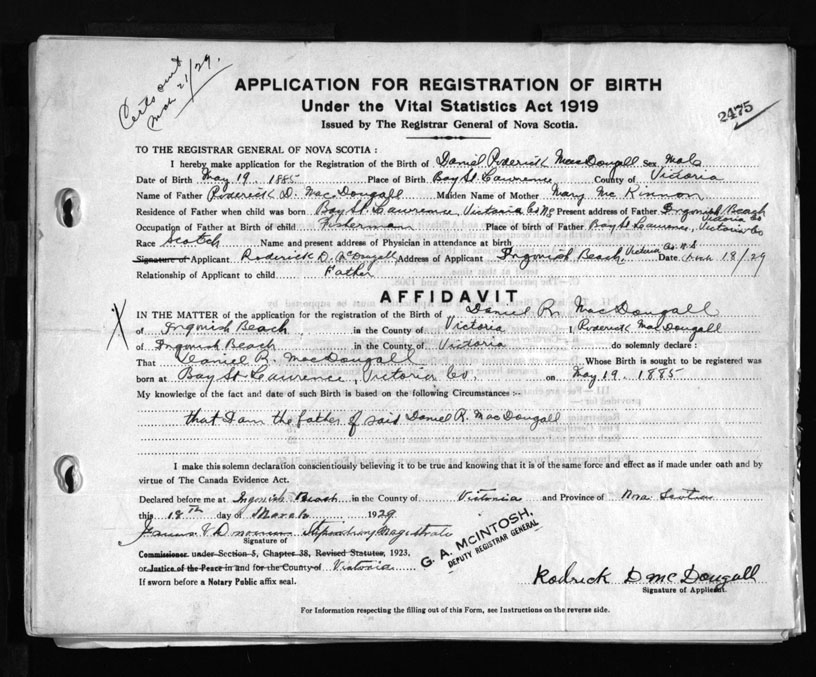 Certs out
Mch 21/29.
APPLICATION FOR REGISTRATION OF BIRTH
Under the Vital Statistics Act 1919
2475
Issued by The Registrar General of Nova Scotia.
TO THE REGISTRAR GENERAL OF NOVA SCOTIA :
I hereby make application for the Registration of the Birth of Daniel Roderick MacDougall Sex Male
Date of Birth May 19. 1885 Place of Birth Bay St. Lawrence County of Victoria
Name of Father Roderick D. MacDougall Maiden Name of Mother Mary McKinnon
Residence of Father when child was born Bay St. Lawrence, Victoria Co NS Present address of Father Ingonish Beach Victoria Co
Occupation of Father at Birth of child Fisherman Place of birth of Father Bay St. Lawrence, Victoria Co
Race Scotch Name and present address of Physician in attendance at birth
Signature of Applicant Roderick D. McDougall Address of Applicant Ingonish Beach, Victoria Co. N.S Date March 18/29
Relationship of Applicant to child Father
AFFIDAVIT
IN THE MATTER of the application for the registration of the Birth of Daniel R. MacDougall
of Ingonish Beach in the County of Victoria I, Roderick MacDougall
of Ingonish Beach in the County of Victoria do solemnly declare :
That Daniel R. MacDougall Whose Birth is sought to be registered was
born at Bay St. Lawrence, Victoria Co. on May 19. 1885
My knowledge of the fact and date of such Birth is based on the following Circumstances :-
that I am the father of said Daniel R. MacDougall
I make this solemn declaration conscientiously believing it to be true and knowing that it is of the same force and effect as if made under oath and by
virtue of The Canada Evidence Act.
Declared before me at Ingonish Beach in the County of Victoria and Province of Nova Scotia
this 18th day of March 1929
Stipendiary Magistrate
Signature of
G. A. McINTOSH,
DEPUTY REGISTRAR GENERAL
Commissioner under Section 5, Chapter 38, Revised Statutes, 1923,
or Justice of the Peace in and for the County of Victoria
Rodrick D McDougall
If sworn before a Notary Public affix seal.
Signature of Applicant.
For Information respecting the filling out of this Form, see Instructions on the reverse side.